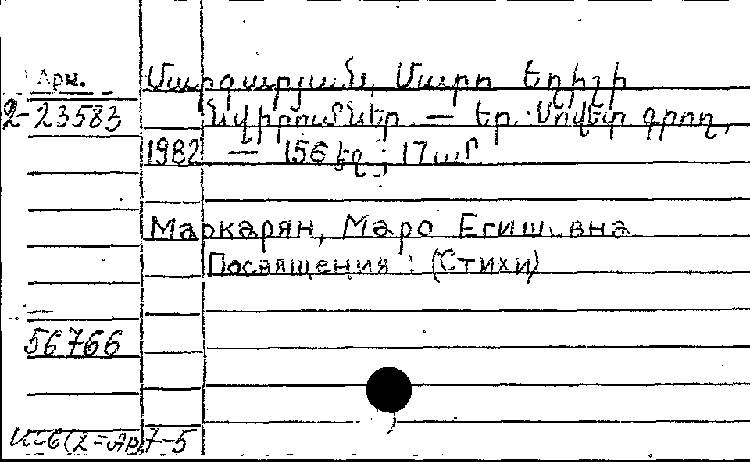 Арм.
2-23583
Մարգարյան, Մարո Եղիշի
Նվիրումներ. — Եր. Սովետ. գրող,
1982 — 156 էջ ; 17 սմ
Маркарян, Маро Егишевна
Посвящения : (Стихи)
56766
7-5